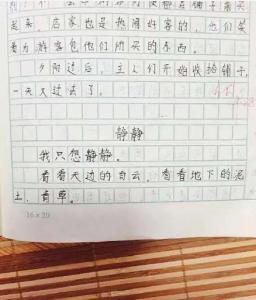 起来。店家也是热闹好客的，他们笑
着为游客包他们所买的东西。
夕阳过后，主人们开始收拾铺子，
一天又过去了。
静静
我只想静静。
看看天边的白云，看看地下的泥
土，看草。
16×20